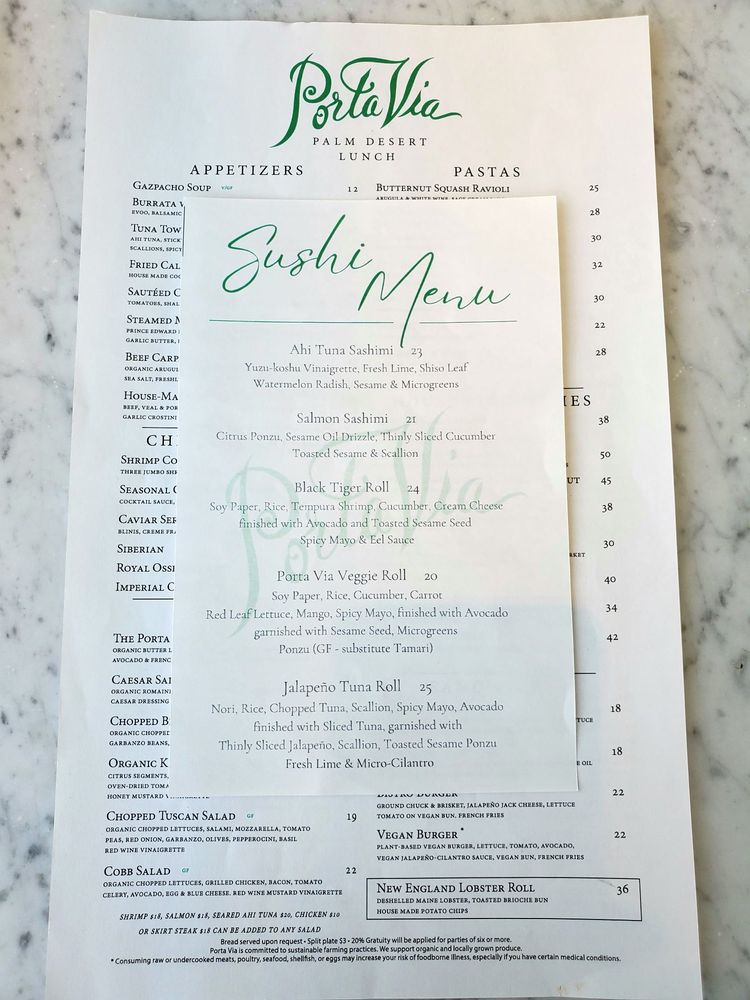 Porta Via
PALM DESERT
LUNCH
APPETIZERS
GAZPACHO SOUP V/GF 12
BURRATA
EVOO, BALSAMIC
TUNA TOW
AHI TUNA, STICK
SCALLIONS, SPICY
FRIED CAL
HOUSE MADE COC
SAUTÉED C
TOMATOES, SHAL
STEAMED
PRINCE EDWARD
GARLIC BUTTER,
BEEF CARP
ORGANIC ARUGUL
SEA SALT, FRESHL
HOUSE-MA
BEEF, VEAL & POR
GARLIC CROSTINI
SHRIMP CO
THREE JUMBO SHR
SEASONAL
COCKTAIL SAUCE,
CAVIAR SER
BLINIS, CREME FRA
SIBERIAN
ROYAL OSSE
IMPERIAL
THE PORTA
ORGANIC BUTTER L
AVOCADO & FRENC
CAESAR SAL
ORGANIC ROMAIN
CAESAR DRESSING
CHOPPED B
ORGANIC CHOPPED
GARBANZO BEANS,
ORGANIC K
CITRUS SEGMENTS,
OVEN-DRIED TOMA
HONEY MUSTARD
CHOPPED TUSCAN SALAD GF 19
ORGANIC CHOPPED LETTUCES, SALAMI, MOZZARELLA, TOMATO
PEAS, RED ONION, GARBANZO, OLIVES, PEPPEROCINI, BASIL
RED WINE VINAIGRETTE
COBB SALAD GF 22
ORGANIC CHOPPED LETTUCES, GRILLED CHICKEN, BACON, TOMATO
CELERY, AVOCADO, EGG & BLUE CHEESE. RED WINE MUSTARD VINAIGRETTE
SHRIMP $18, SALMON $18, SEARED AHI TUNA $20, CHICKEN $10
OR SKIRT STEAK $18 CAN BE ADDED TO ANY SALAD
PASTAS
BUTTERNUT SQUASH RAVIOLI 25
28
30
32
30
22
28
38
50
45
38
30
40
34
42
18
18
BISTRO BURGER 22
GROUND CHUCK & BRISKET, JALAPEÑO JACK CHEESE, LETTUCE
TOMATO ON VEGAN BUN. FRENCH FRIES
VEGAN BURGER * 22
PLANT-BASED VEGAN BURGER, LETTUCE, TOMATO, AVOCADO,
VEGAN JALAPEÑO-CILANTRO SAUCE, VEGAN BUN, FRENCH FRIES
NEW ENGLAND LOBSTER ROLL 36
DESHELLED MAINE LOBSTER, TOASTED BRIOCHE BUN
HOUSE MADE POTATO CHIPS
Sushi
Menu
Ahi Tuna Sashimi 23
Yuzu-koshu Vinaigrette, Fresh Lime, Shiso Leaf
Watermelon Radish, Sesame & Microgreens
Salmon Sashimi 21
Citrus Ponzu, Sesame Oil Drizzle, Thinly Sliced Cucumber
Toasted Sesame & Scallion
Black Tiger Roll 24
Soy Paper, Rice, Tempura Shrimp, Cucumber, Cream Cheese
finished with Avocado and Toasted Sesame Seed
Spicy Mayo & Eel Sauce
Porta Via Veggie Roll 20
Soy Paper, Rice, Cucumber, Carrot
Red Leaf Lettuce, Mango, Spicy Mayo, finished with Avocado
garnished with Sesame Seed, Microgreens
Ponzu (GF - substitute Tamari)
Jalapeño Tuna Roll 25
Nori, Rice, Chopped Tuna, Scallion, Spicy Mayo, Avocado
finished with Sliced Tuna, garnished with
Thinly Sliced Jalapeño, Scallion, Toasted Sesame Ponzu
Fresh Lime & Micro-Cilantro
Porta Via
Bread served upon request • Split plate $3 • 20% Gratuity will be applied for parties of six or more.
Porta Via is committed to sustainable farming practices. We support organic and locally grown produce.
* Consuming raw or undercooked meats, poultry, seafood, shellfish, or eggs may increase your risk of foodborne illness, especially if you have certain medical conditions.